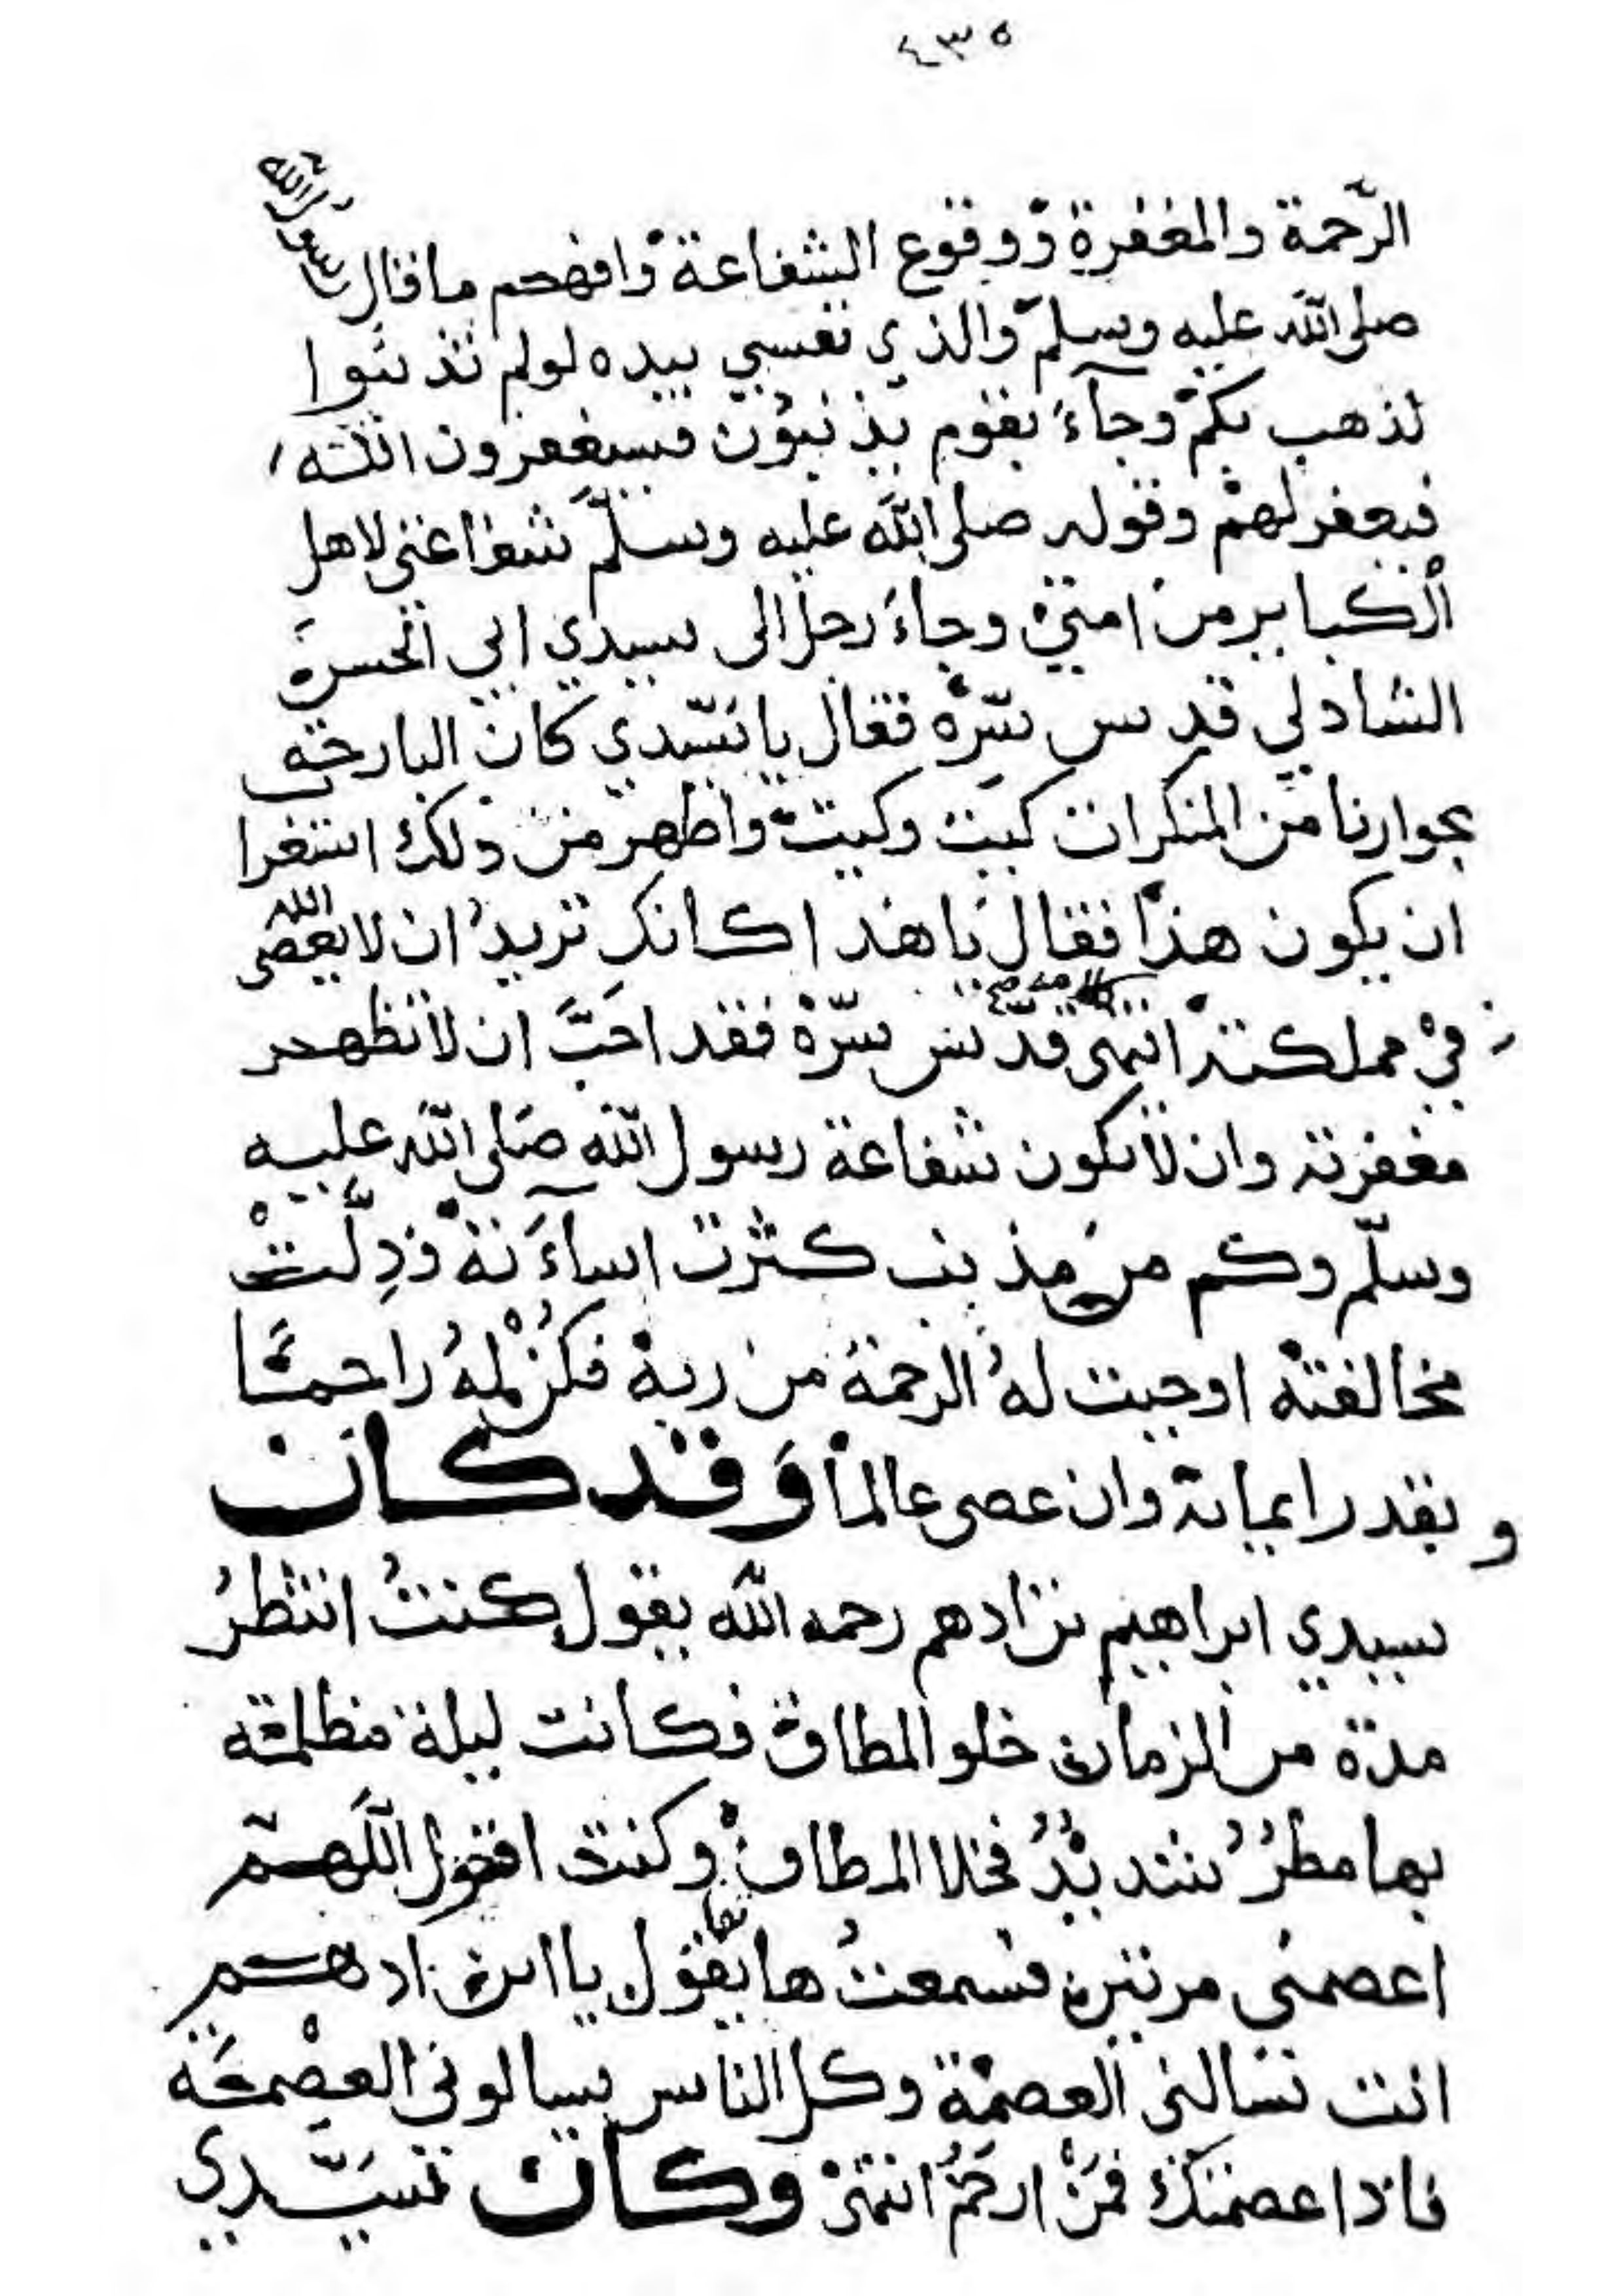 ٤٣٥
الرّحمة والمغفرة ووقوع الشفاعة وافهم ما قال رسول الله
صلى الله عليه وسلم والذي نفسي بيده لولم تذنبوا
لذهب بكم وجاء بقوم يذنبون فيستغفرون الله
فيغفر لهم وقوله صلى الله عليه وسلم شفاعتي لاهل
الكباير من امتي وجاء رجل الى سيدي ابي الحسن
الشاذلي قدس سره فقال يا سيدي كان البارحة
بجوارنا من المنكرات كيت وكيت واظهر من ذلك استغرا
ان يكون هذا فقال يا هذا كانك تريد ان لا يعصى الله
في مملكته انتهى قدس سره فقد احبّ ان لا تظهر
مغفرته وان لا تكون شفاعة رسول الله صلى الله عليه
وسلّم وكم من مذنب كثرت اساءته
مخالفته اوجبت له الرحمة من ربه فكن له راحما
و بقدر ايمانه وان عصى عالما وقد كان
سيدي ابراهيم بن ادهم رحمه الله يقول كنت انتظر
مدة من الزمان خلو المطاف فكانت ليلة مظلمة
بها مطر شديد فخلا المطاف وكنت اقول اللهم
اعصمني مرتين فسمعت هاتفا يقول يا ابن ادهم
انت تسالني العصمة وكل الناس يسالوني العصمة
فاذا عصمتك فمن ارحم انتهى وكان سيّدي